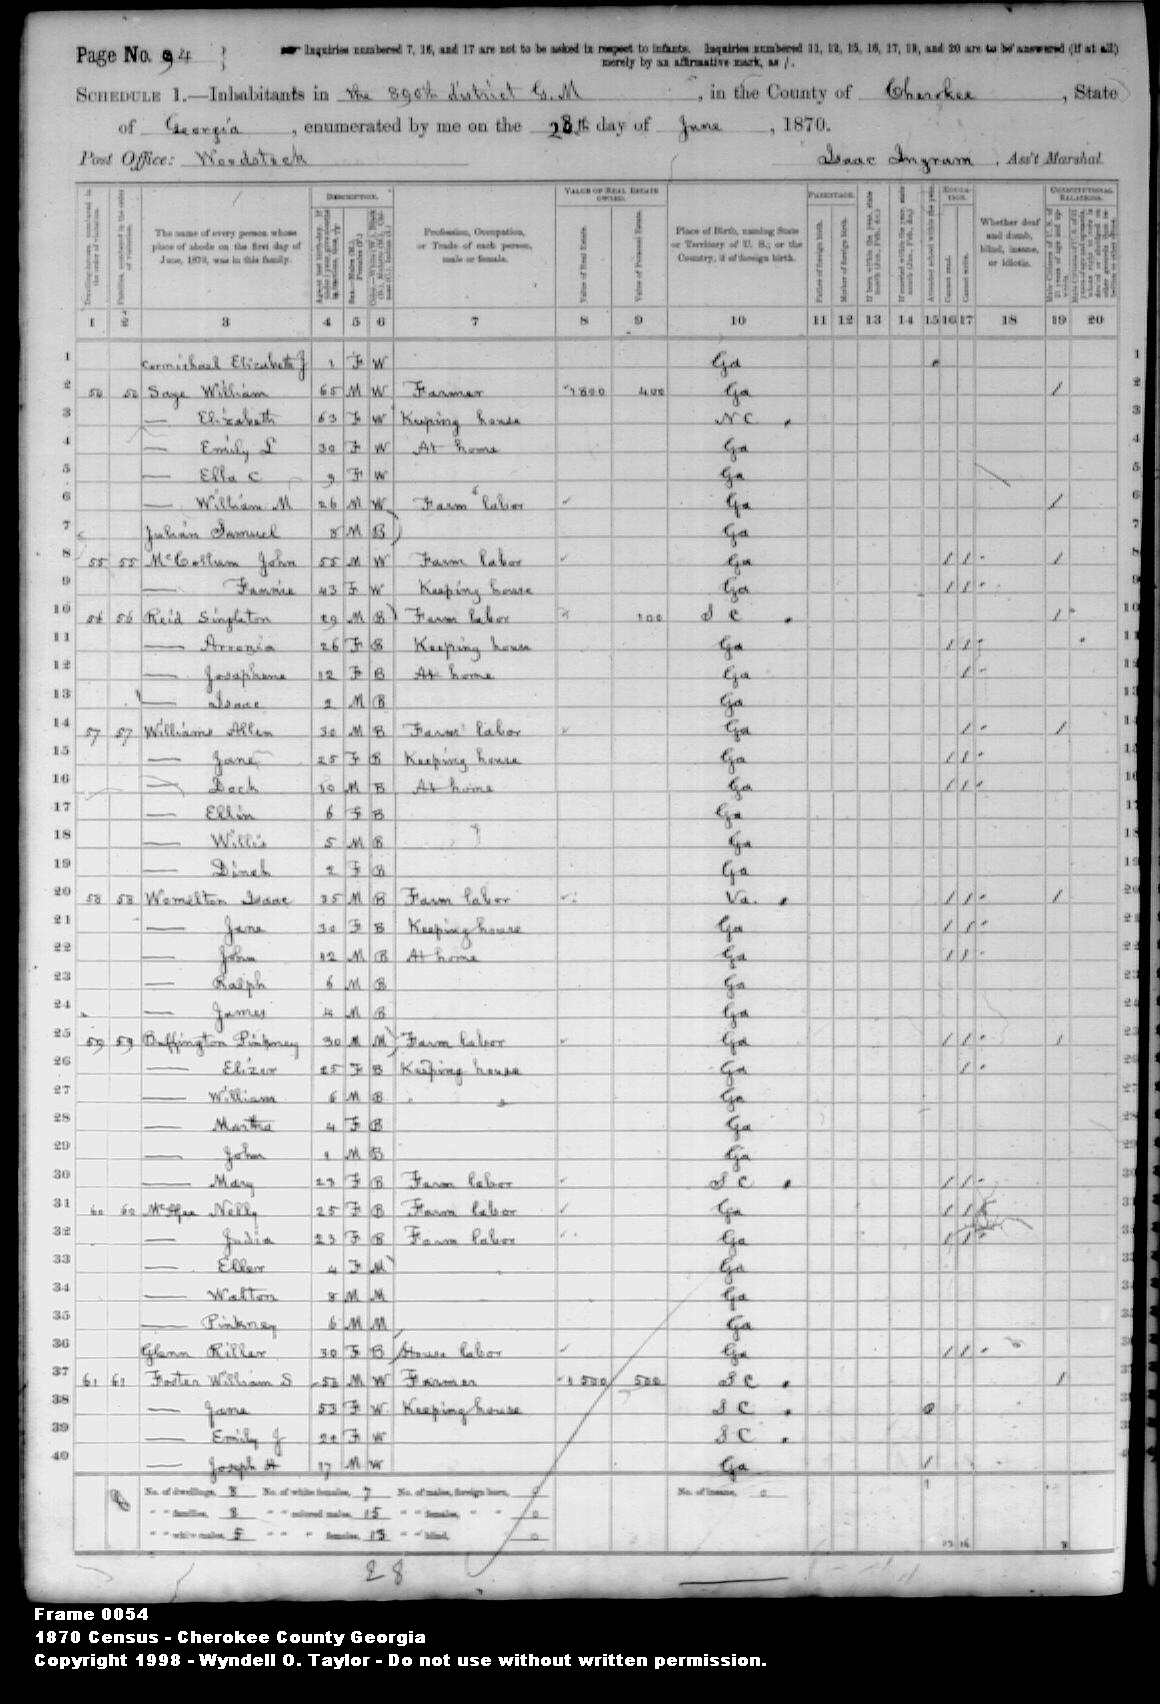 Page No. 94
Inquiries numbered 7, 16, and 17 are not to be asked in respect to infants. Inquiries numbered 11, 12, 15, 16, 17, 19, and 20 are to be answered (if at all)
merely by an affirmative mark, as /.
SCHEDULE 1.—Inhabitants in the 890th district G. M, in the County of Cherokee, State
of Georgia, enumerated by me on the 28th day of June, 1870.
Post Office: Woodstock Isaac Ingram, Ass't Marshal.
DESCRIPTION. VALUE OF REAL ESTATE OWNED. PARENTAGE. EDUCATION. CONSTITUTIONAL RELATIONS.
The name of every person whose place of abode on the first day of June, 1870, was in this family.
Profession, Occupation, or Trade of each person, male or female.
Value of Real Estate. Value of Personal Estate.
Place of Birth, naming State or Territory of U. S.; or the Country, if of foreign birth.
Father of foreign birth. Mother of foreign birth.
Attended school within the year.
Cannot read. Cannot write.
Whether deaf and dumb, blind, insane, or idiotic.
1 2 3 4 5 6 7 8 9 10 11 12 13 14 15 16 17 18 19 20
1 Carmichael Elizabeth J 1 F W Ga 1
2 Saye William 65 M W Farmer 1800 400 Ga / 2
3 — Elizabeth 63 F W Keeping house N C 3
4 — Emily L 30 F W At home Ga 4
5 — Ella C 3 F W Ga 5
6 — William M 26 M W Farm labor Ga / 6
7 Julian Samuel 8 M B Ga 7
8 55 55 McCollum John 55 M W Farm labor Ga / / / 8
9 — Fannie 43 F W Keeping house Ga / / 9
10 56 56 Reid Singleton 29 M B Farm labor 100 S C / 10
11 — Arronia 26 F B Keeping house Ga / / 11
12 — Josaphene 12 F B At home Ga / 12
13 — Isaac 2 M B Ga 13
14 57 57 Williams Allen 30 M B Farm labor Ga / / 14
15 — Jane 25 F B Keeping house Ga / / 15
16 — Dock 10 M B At home Ga / / 16
17 — Ellen 6 F B Ga 17
18 — Willis 5 M B Ga 18
19 — Dinah 2 F B Ga 19
20 58 58 Womelton Isaac 35 M B Farm labor Va. / / / 20
21 — Jane 30 F B Keeping house Ga / / 21
22 — John 12 M B At home Ga / / 22
23 — Ralph 6 M B Ga 23
24 — James 4 M B Ga 24
25 59 59 Buffington Pinkney 30 M M Farm labor Ga / / / 25
26 — Elizer 25 F B Keeping house Ga / 26
27 — William 6 M B Ga 27
28 — Martha 4 F B Ga 28
29 — John 1 M B Ga 29
30 — Mary 23 F B Farm labor S C / / 30
31 60 60 McAfee Nelly 25 F B Farm labor Ga / / 31
32 — Judia 23 F B Farm labor Ga / / 32
33 — Ellen 4 F M Ga 33
34 — Walton 8 M M Ga 34
35 — Pinkney 6 M M Ga 35
36 Glenn Riller 30 F B House labor Ga / / 36
37 61 61 Foster William S 50 M W Farmer 1500 500 S C / 37
38 — Jane 53 F W Keeping house S C
39 — Emily J 20 F W S C
40 — Joseph H 17 M W Ga /
No. of dwellings, 8 No. of white females, 7 No. of males, foreign born, 0 No. of insane, 0
" " families, 8 " " colored males, 15 " " females, " " 0
" " white males, 5 " " " females, 13 " " blind, 0
28
Frame 0054
1870 Census - Cherokee County Georgia
Copyright 1998 - Wyndell O. Taylor - Do not use without written permission.